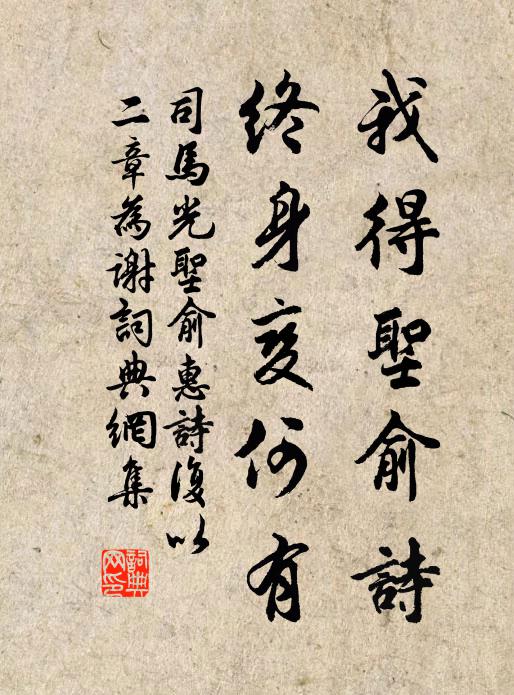 我得聖俞詩
終身亦何有
司馬光聖俞惠詩復以
二章為謝詞典網集
詞典
网印